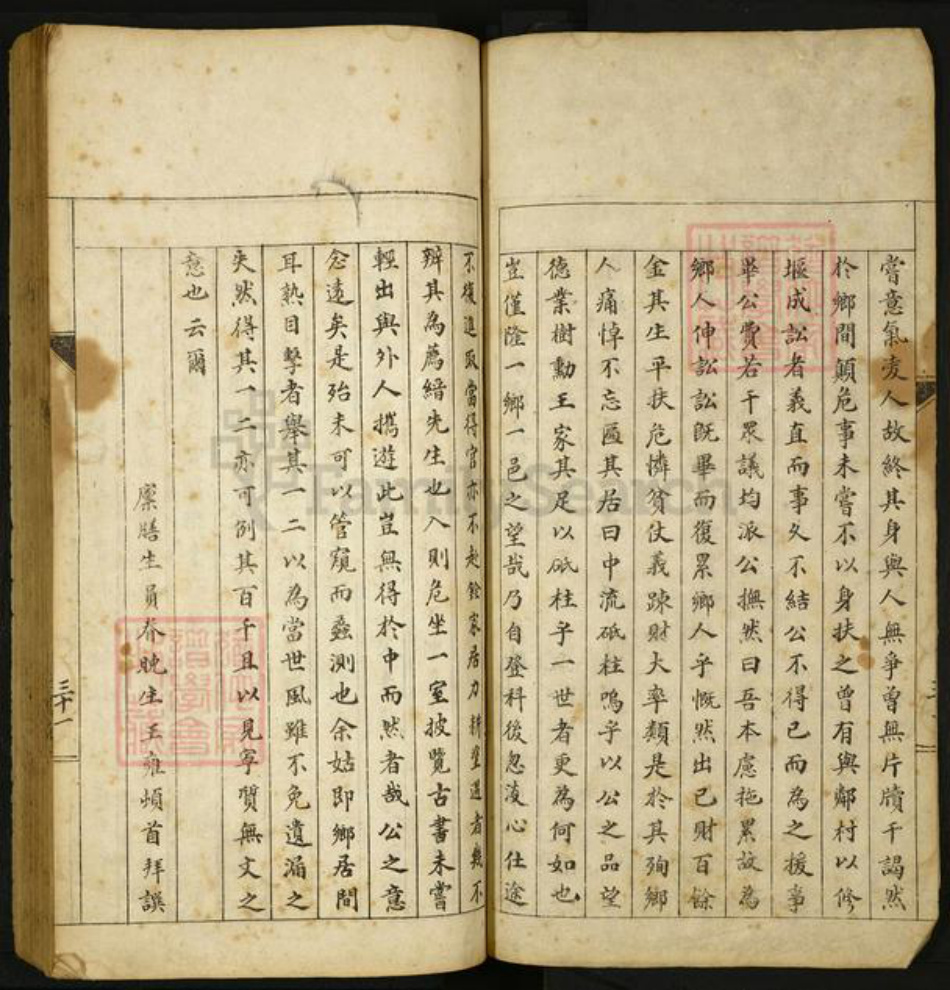 嘗意氣麦人故終其身與人無爭曾無片牘干謁然
於鄉間顛危事未嘗不以身扶之曾有與鄰村以修
堰成訟者義直而事久不結公不得已而為之援事
畢公費若干眾議均派公撫然曰吾本慮拖累故為
鄉人伸訟訟既畢而復累鄉人乎慨然出己財百餘
金其生平扶危憐貧仗義踈財大率類是於其殉鄉
人痛悼不忘匾其居曰中流砥柱嗚乎以公之品望
德業樹勳王家其足以砥柱乎一世者更為何如也
豈僅隆一鄉一邑之望哉乃自登科後忽淡心仕途
不復進取當得官亦不赴銓家居力耕望道者幾不
辨其為薦縉先生也入則危坐一室披覽古書未嘗
輕出與外人攜遊此豈無得於中而然者哉公之意
念遠矣是殆未可以管窺而蠡測也余姑即鄉居間
耳熟目擊者舉其一二以為當世風雖不免遺漏之
失然得其一二亦可例其百千且以見寧質無文之
意也云爾
廩膳生員眷晚生王雍頓首拜譔
三十一
FamilySearch